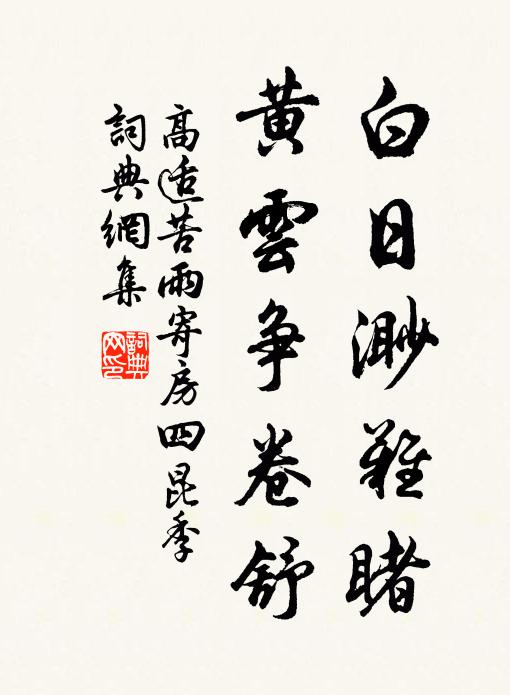 白日渺難睹
黃雲爭卷舒
高适苦雨寄房四昆季
詞典網集
詞典网印